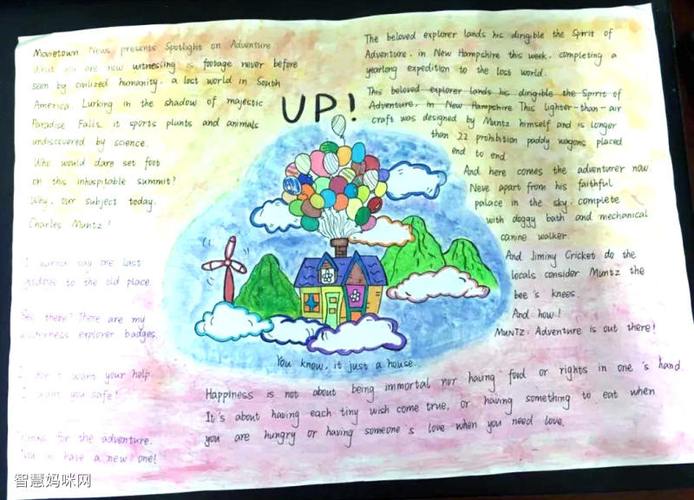 Movietown News presents Spotlight on Adventure
What you are now witnessing is footage never before
seen by civilized humanity, a lost world in South
America. Lurking in the shadow of majestic
Paradise Falls, it sports plants and animals
undiscovered by science.
Who would dare set foot
on this inhospitable summit?
Why, our subject today.
Charles Muntz!
I wanna say one last
goodbye to the old place.
See there? There are my
wilderness explorer badges.
I don't want your help
I want you safe!
Thanks for the adventure.
You have a new one!
UP!
The beloved explorer lands his dirigible the Spirit of
Adventure, in New Hampshire this week, completing a
yearlong expedition to the lost world.
This beloved explorer lands his dirigible the Spirit of
Adventure, in New Hampshire This lighter-than-air
craft was designed by Muntz himself and is longer
than 22 prohibition paddy wagons placed
end to end
And here comes the adventurer now.
Neve apart from his faithful
palace in the sky, complete
with doggy bath and mechanical
canine walker.
And Jiminy Cricket do the
locals consider Muntz the
bee's knees.
And how!
MUNTZ: Adventure is out there!
You know, it just a house.
Happiness is not about being immortal nor having food or rights in one's hand.
It's about having each tiny wish come true, or having something to eat when
you are hungry or having someone's love when you need love.
智慧妈咪网